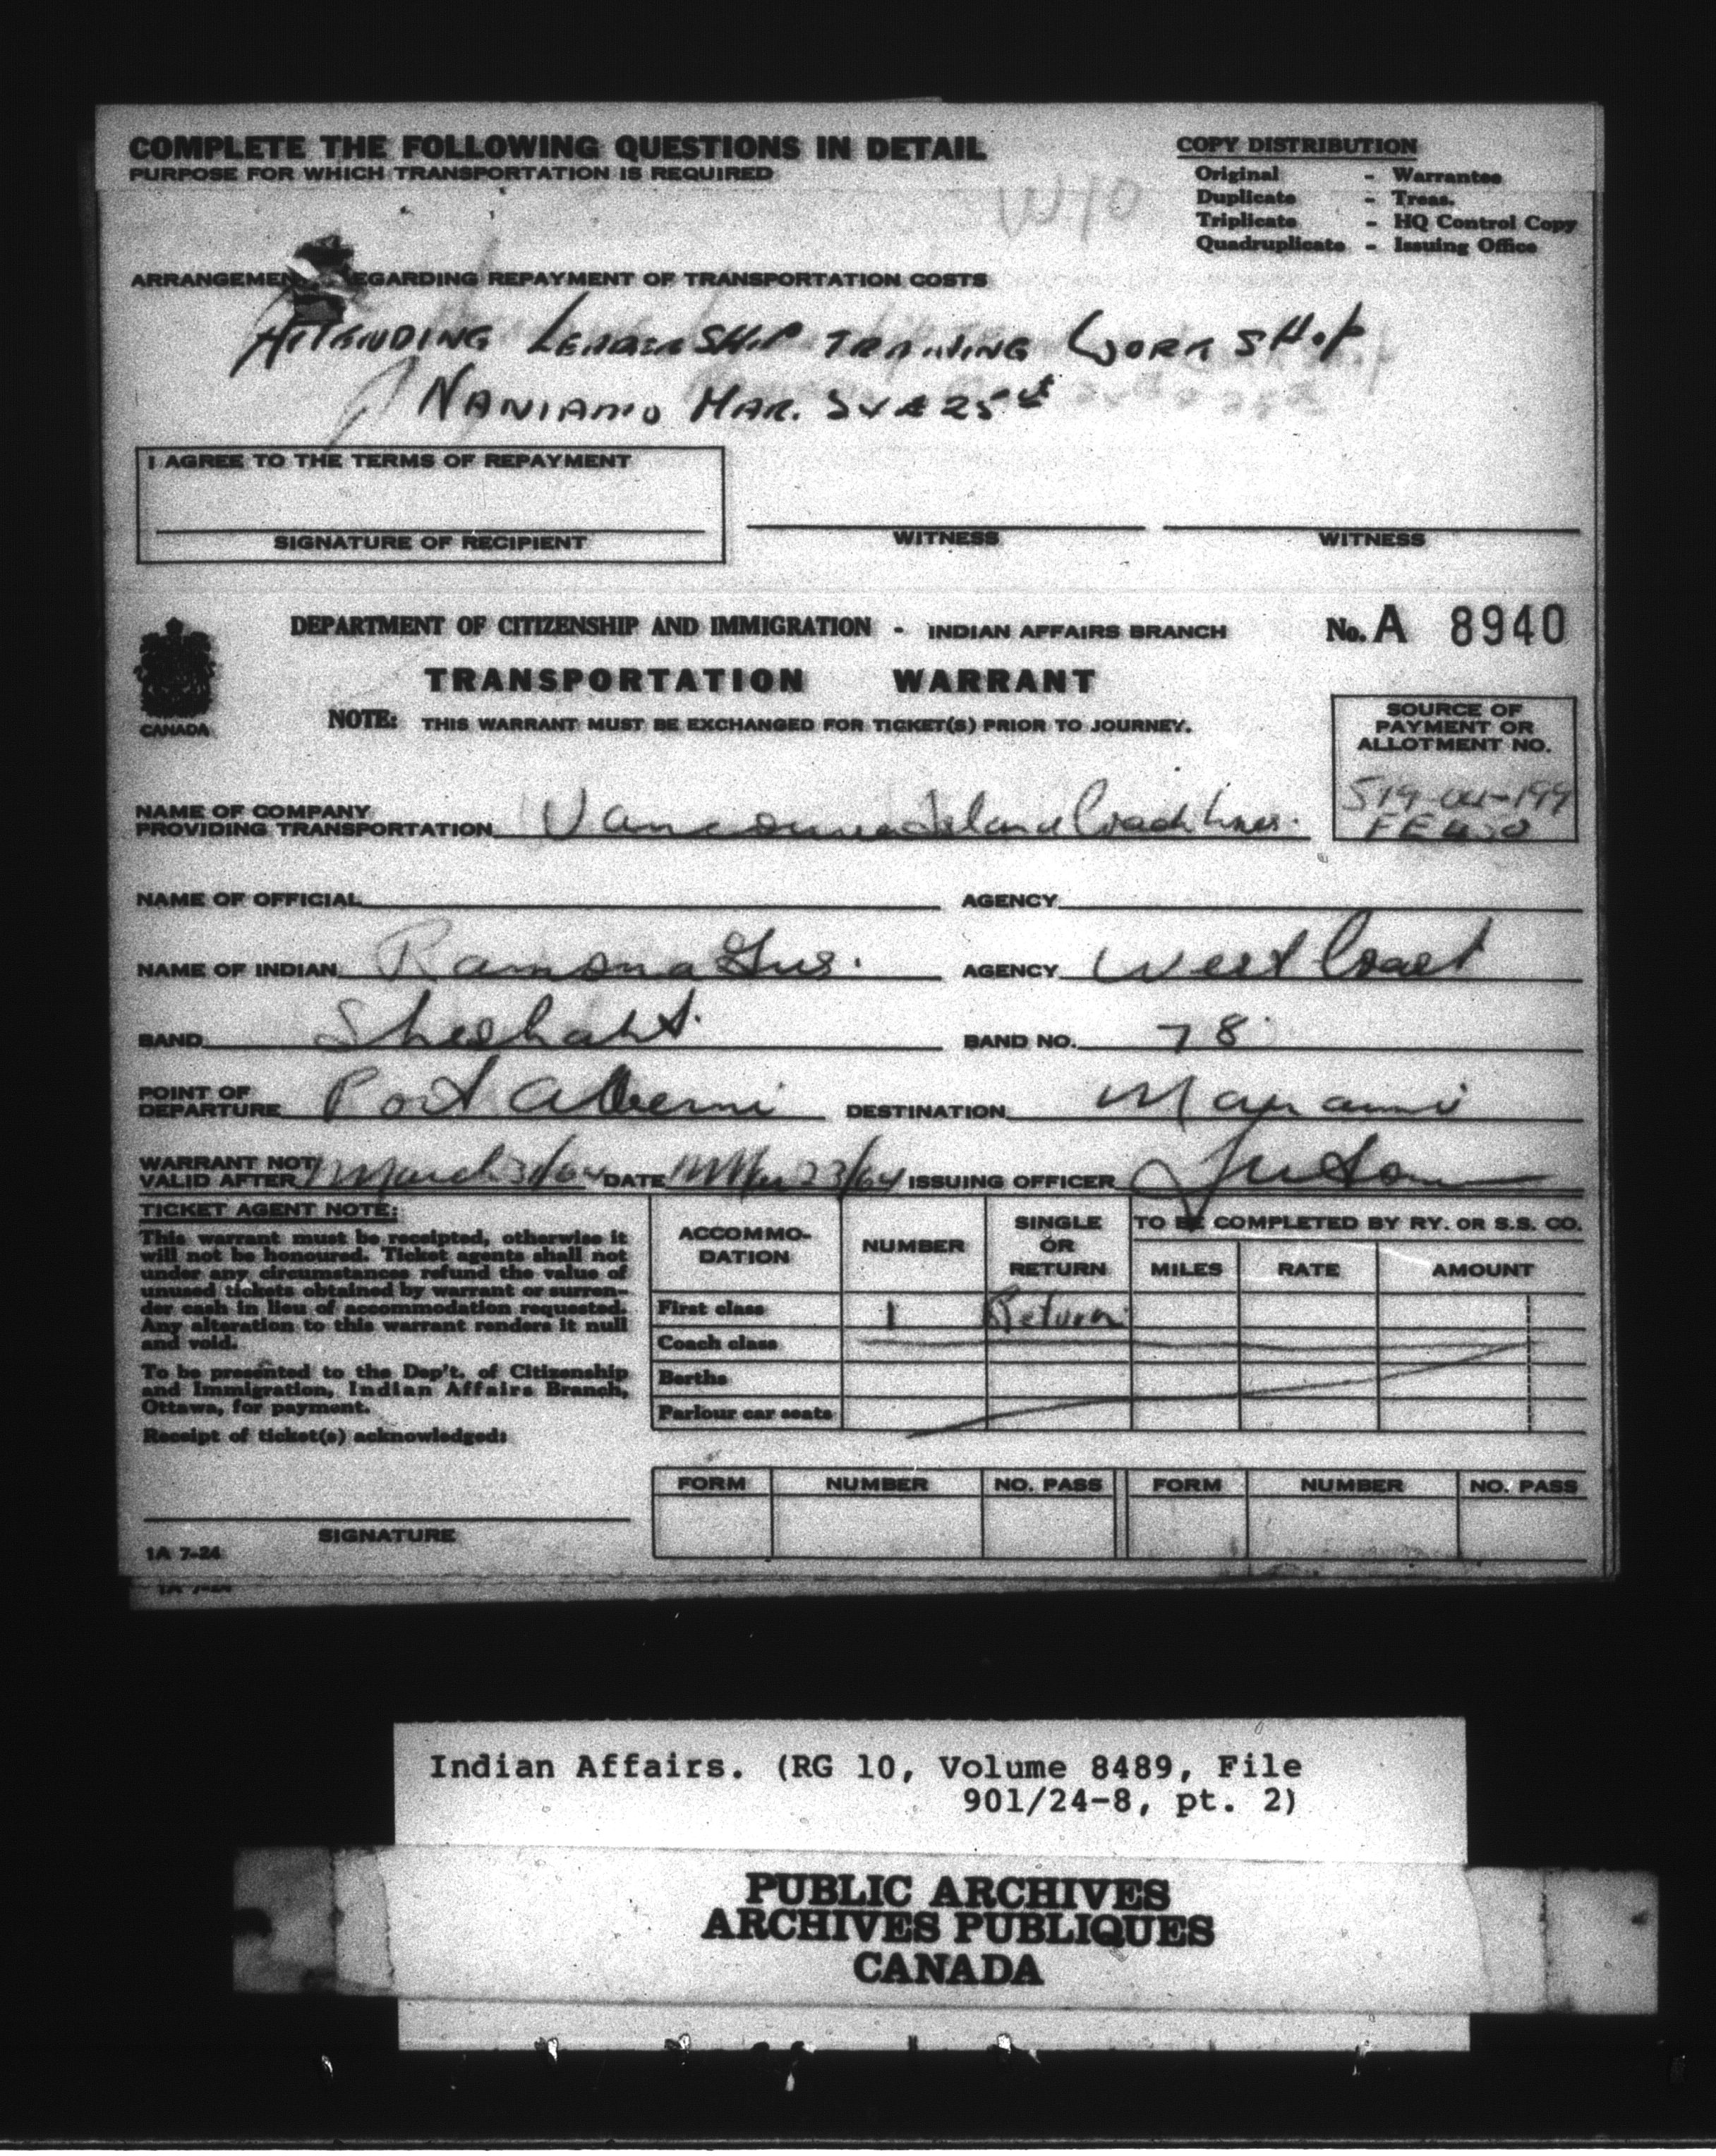 COMPLETE THE FOLLOWING QUESTIONS IN DETAIL
PURPOSE FOR WHICH TRANSPORTATION IS REQUIRED
COPY DISTRIBUTION
Original - Warrantee
Duplicate - Treas.
Triplicate - HQ Control Copy
Quadruplicate - Issuing Office
ARRANGEMEN EGARDING REPAYMENT OF TRANSPORTATION COSTS
ATTENDING LEADERSHIP TRAINING WORKSHOP
NANIAMO MAR. 24 & 25
I AGREE TO THE TERMS OF REPAYMENT
SIGNATURE OF RECIPIENT
WITNESS
WITNESS
CANADA
DEPARTMENT OF CITIZENSHIP AND IMMIGRATION - INDIAN AFFAIRS BRANCH
No. A 8940
TRANSPORTATION WARRANT
NOTE: THIS WARRANT MUST BE EXCHANGED FOR TICKET(S) PRIOR TO JOURNEY.
SOURCE OF
PAYMENT OR
ALLOTMENT NO.
NAME OF COMPANY
PROVIDING TRANSPORTATION Vancouver Island Coach Lines.
NAME OF OFFICIAL AGENCY
NAME OF INDIAN Ramona Gus. AGENCY West Coast
BAND Sheshaht. BAND NO. 78
POINT OF
DEPARTURE Port Alberni DESTINATION
WARRANT NOT
VALID AFTER March 31/64 DATE 23/64 ISSUING OFFICER
TICKET AGENT NOTE:
This warrant must be receipted, otherwise it
will not be honoured. Ticket agents shall not
under any circumstances refund the value of
unused tickets obtained by warrant or surren-
der cash in lieu of accommodation requested.
Any alteration to this warrant renders it null
and void.
To be presented to the Dep't. of Citizenship
and Immigration, Indian Affairs Branch,
Ottawa, for payment.
Receipt of ticket(s) acknowledged:
SIGNATURE
1A 7-24
1A 7-24
ACCOMMO-
DATION
NUMBER
SINGLE
OR
RETURN
TO BE COMPLETED BY RY. OR S.S. CO.
MILES RATE AMOUNT
First class 1 Return
Coach class
Berths
Parlour car seats
FORM NUMBER NO. PASS FORM NUMBER NO. PASS
Indian Affairs. (RG 10, Volume 8489, File
901/24-8, pt. 2)
PUBLIC ARCHIVES
ARCHIVES PUBLIQUES
CANADA